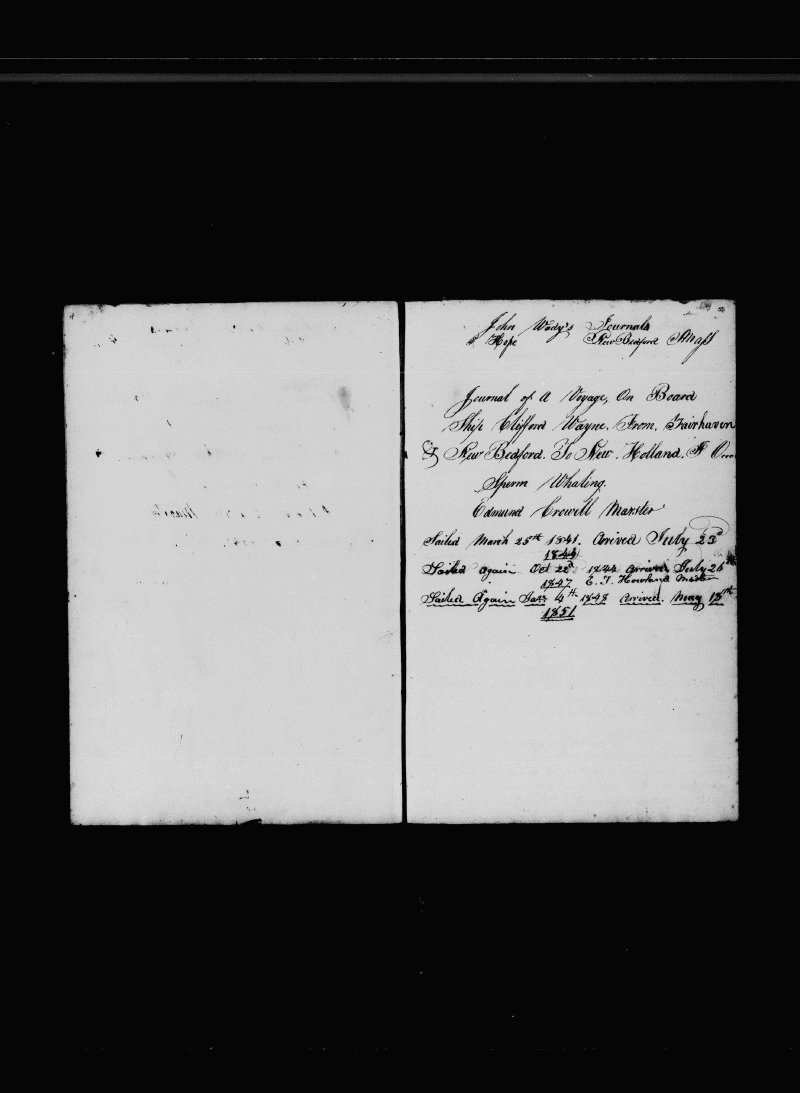 John Wady's Journals
Hope New Bedford Mass
Journal of A Voyage, On Board
Ship Clifford Wayne. From. Fairhaven
& New Bedford. To New. Holland. &
Sperm Whaling.
Edmund Crowell Marster
Sailed March 25th 1841. Arrived July 23d
1844
Sailed Again Oct 22d 1844 Arrived July 26
1847 E. T. Howland Master
Sailed Again Jan 4th 1848 Arrived. May 18th
1851